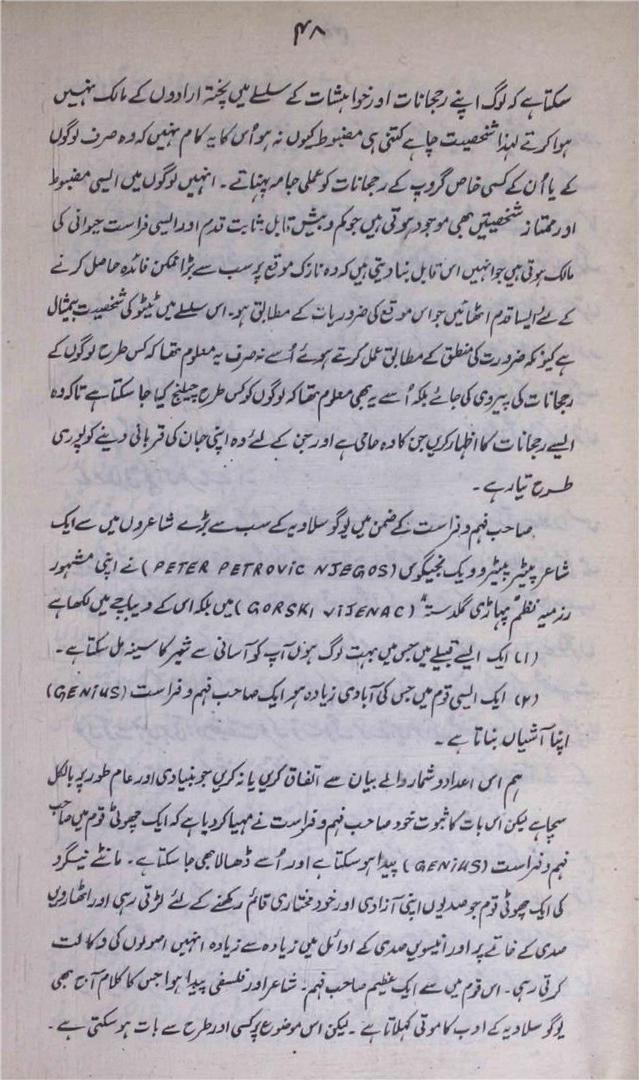 ۴۸
سکتا ہے کہ لوگ اپنے رجحانات اور خواہشات کے سلسلے میں پختہ ارادوں کے مالک نہیں
ہوا کرتے لہذا شخصیت چاہے کتنی ہی مضبوط کیوں نہ ہو اُس کا یہ کام نہیں کہ وہ صرف لوگوں
کے یا اُن کے کسی خاص گروپ کے رجحانات کو عملی جامہ پہنائے ۔ انہیں لوگوں میں ایسی مضبوط
اور ممتاز شخصیتیں بھی موجود ہوتی ہیں جو کم و بیش قابل ثابت قدم اور ایسی فراست حیوانی کی
مالک ہوتی ہیں جو انہیں اس قابل بنا دیتی ہیں کہ وہ نازک موقع پر سب سے بڑا ممکن فائدہ حاصل کرنے
کے لئے ایسا قدم اٹھائیں جو اس موقع کی ضروریات کے مطابق ہو۔ اس سلسلے میں ٹیٹو کی شخصیت بیمثال
ہے کیونکہ ضرورت کی منطق کے مطابق عمل کرتے ہوئے اُسے نہ صرف یہ معلوم تھا کہ کس طرح لوگوں کے
رجحانات کی پیروی کی جائے بلکہ اُسے یہ بھی معلوم تھا کہ لوگوں کو کس طرح چیلنج کیا جا سکتا ہے تاکہ وہ
ایسے رجحانات کا اظہار کریں جن کا وہ حامی ہے اور جن کے لئے وہ اپنی جان کی قربانی دینے کو پوری
طرح تیار ہے ۔
صاحب فہم و فراست کے ضمن میں یوگوسلاویہ کے سب سے بڑے شاعروں میں سے ایک
شاعر پیٹر پیٹرو ویک نجیگوس (PETER PETROVIC NJEGOS) نے اپنی مشہور
رزمیہ نظم "پہاڑی گلدستہ" (GORSKI VIJENAC) میں بلکہ اس کے دیباچے میں لکھا ہے
(۱) ایک ایسے قبیلے میں جس میں بہت لوگ ہوں آپ کو آسانی سے شیر کا سینہ مل سکتا ہے ۔
(۲) ایک ایسی قوم میں جس کی آبادی زیادہ ہو ایک صاحب فہم و فراست (GENIUS)
اپنا آشیاں بناتا ہے ۔
ہم اس اعداد و شمار والے بیان سے اتفاق کریں یا نہ کریں جو بنیادی اور عام طور پر بالکل
سچا ہے لیکن اس بات کا ثبوت خود صاحب فہم و فراست نے مہیا کر دیا ہے کہ ایک چھوٹی قوم میں صاحب
فہم و فراست (GENIUS) پیدا ہو سکتا ہے اور اُسے ڈھالا بھی جا سکتا ہے ۔ مانٹے نیگرو
کی ایک چھوٹی قوم جو صدیوں اپنی آزادی اور خود مختاری قائم رکھنے کے لئے لڑتی رہی اور اٹھارویں
صدی کے خاتمے پر اور انیسویں صدی کے اوائل میں زیادہ سے زیادہ انہیں اصولوں کی وکالت
کرتی رہی ۔ اس قوم میں سے ایک عظیم صاحب فہم ۔ شاعر اور فلسفی پیدا ہوا جس کا کلام آج بھی
یوگوسلاویہ کے ادب کا موتی کہلاتا ہے ۔ لیکن اس موضوع پر کسی اور طرح سے بات ہو سکتی ہے ۔